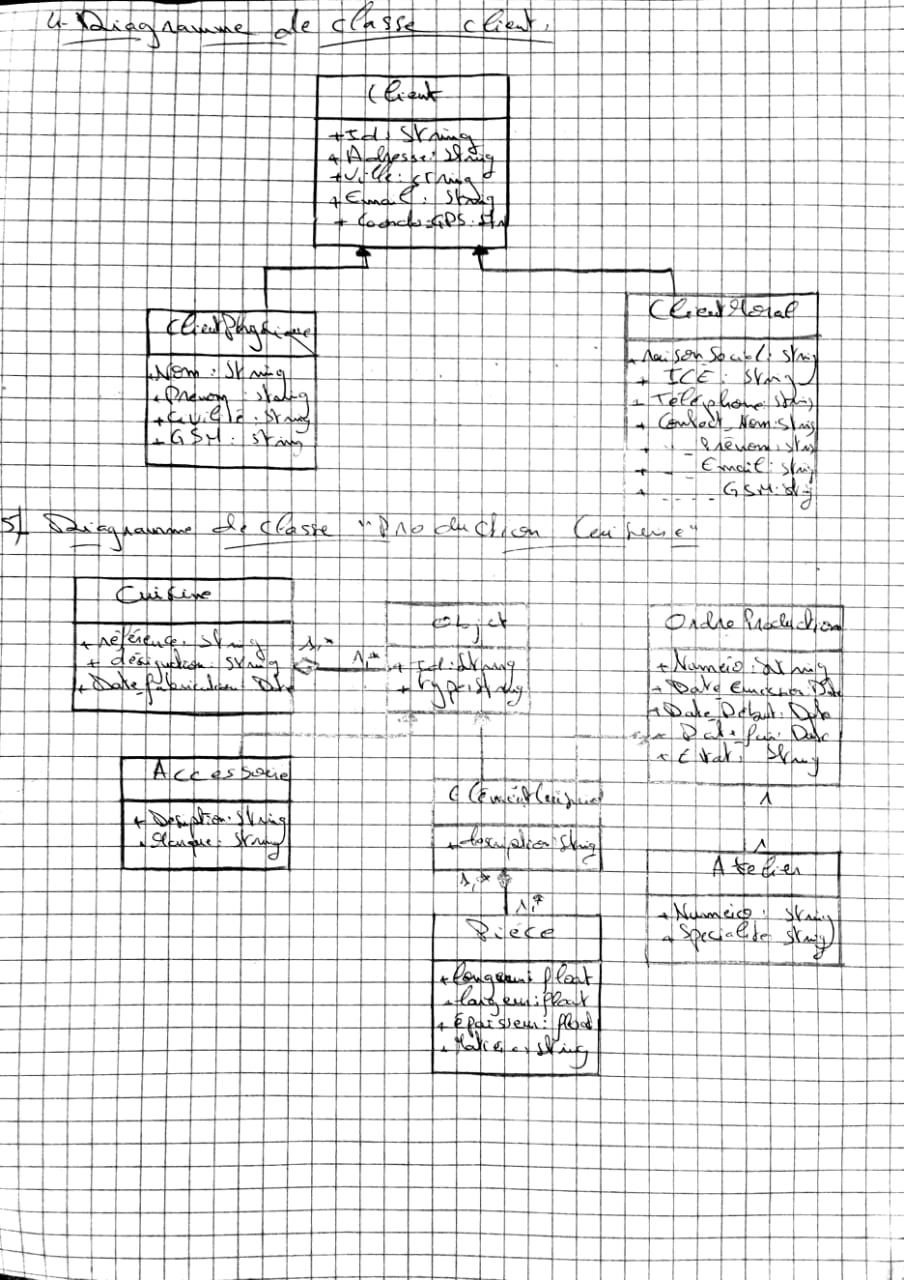 4- Diagramme de classe client.
Client
+ Id: String
+ Adresse: String
+ Ville: string
+ Email: String
+ Coordo-GPS: Str
Client Physique
+ Nom: String
+ Prénom: string
+ Civilité: String
+ GSM: string
Client Moral
+ raison Social: string
+ ICE: String
+ Téléphone: String
+ Contact_Nom: String
+ __ Prénom: string
+ __ Email: string
+ ____ GSM: string
5/ Diagramme de classe "Production Cuisine"
Cuisine
+ référence: String
+ désignation: String
+ Date fabrication: Date
1,*
1,*
Objet
+ Id: String
+ type: string
Ordre Production
+ Numéro: String
+ Date_ Date
+ Date_Début: Date
+ Date_fin: Date
+ Etat: String
Accessoire
+ Description: String
+ Marque: String
Elément Cuisine
+ description: String
1
1
1,*
1,*
Atelier
+ Numéro: String
+ Specialité: String
Pièce
+ longueur: float
+ largeur: float
+ Epaisseur: float
+ Matière: string